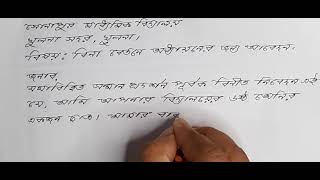 সোনাপুর মাধ্যমিক বিদ্যালয়
খুলনা সদর, খুলনা।
বিষয়: বিনা বেতনে অধ্যয়নের জন্য আবেদন।
জনাব,
যথাবিহিত সম্মান প্রদর্শন পূর্বক বিনীত নিবেদন এই
যে, আমি আপনার বিদ্যালয়ের ৬ষ্ঠ শ্রেণির
একজন ছাত্র। আমার বাব